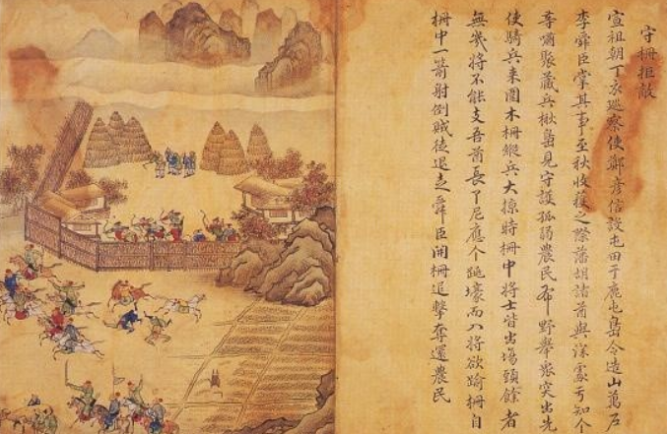 守柵拒敵
宣祖朝丁亥巡察使鄭彦信設屯田于鹿屯島令造山萬戶
李舜臣掌其事至秋收穫之際藩胡諸酋與深處亏知介
等嘯聚藏兵楸島見守護孤弱農民布野舉衆突出先
使騎兵来圍木柵縱兵大掠時柵中將士皆出場頭餘者
無幾將不能支吾酋長了尼應介跳壕而入將欲踰柵自
柵中一箭射倒賊徒退走舜臣開柵追擊奪還農民